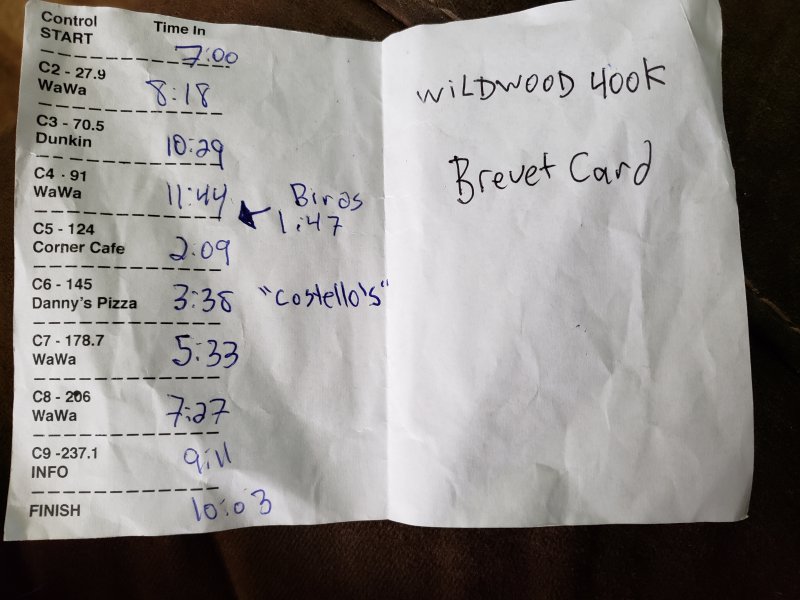 Control Time In
START
7:00
C2 - 27.9
WaWa 8:18
C3 - 70.5
Dunkin 10:29
C4 - 91
WaWa 11:44
Biras
1:47
C5 - 124
Corner Cafe 2:09
C6 - 145
Danny's Pizza 3:38 "Costello's"
C7 - 178.7
WaWa 5:33
C8 - 206
WaWa 7:27
C9 -237.1
INFO 9:11
FINISH 10:03
WiLDWOOD 400K
Brevet Card